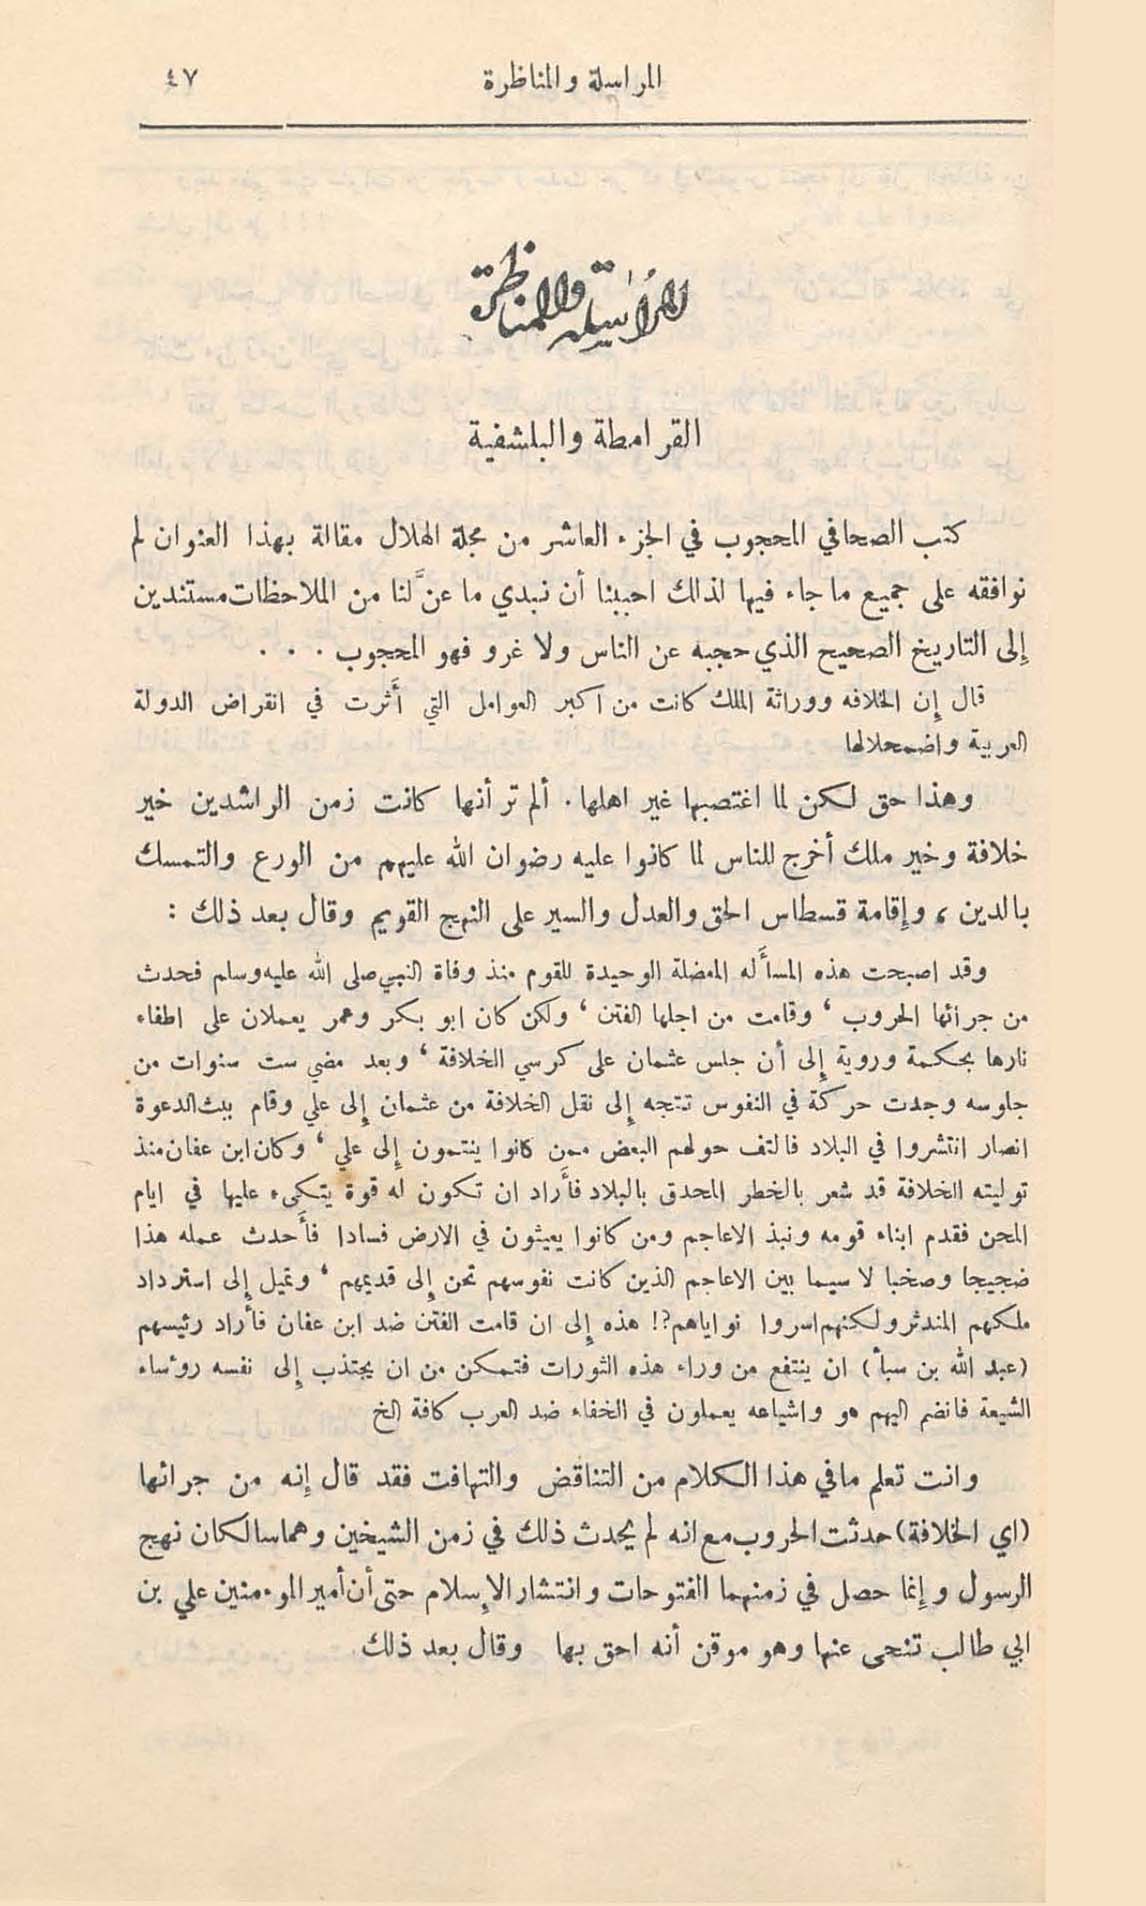 المراسلة والمناظرة
٤٧
المراسلة والمناظرة
القرامطة والبلشفية
كتب الصحافي المحجوب في الجزء العاشر من مجلة الهلال مقالة بهذا العنوان لم
نوافقه على جميع ما جاء فيها لذلك احببنا أن نبدي ما عنَّ لنا من الملاحظات مستندين
إلى التاريخ الصحيح الذي حجبه عن الناس ولا غرو فهو المحجوب . . .
قال إن الخلافه ووراثة الملك كانت من اكبر العوامل التي أثرت في انقراض الدولة
العربية واضمحلالها
وهذا حق لكن لما اغتصبها غير اهلها . ألم تر أنها كانت زمن الراشدين خير
خلافة وخير ملك أخرج للناس لما كانوا عليه رضوان الله عليهم من الورع والتمسك
بالدين ، وإقامة قسطاس الحق والعدل والسير على النهج القويم وقال بعد ذلك :
وقد اصبحت هذه المسأله المعضلة الوحيدة للقوم منذ وفاة النبي صلى الله عليه وسلم فحدث
من جرائها الحروب ، وقامت من اجلها الفتن ، ولكن كان ابو بكر وعمر يعملان على اطفاء
نارها بحكمة وروية إلى أن جلس عثمان على كرسي الخلافة ، وبعد مضي ست سنوات من
جلوسه وجدت حركة في النفوس تتجه إلى نقل الخلافة من عثمان إلى علي وقام ببث الدعوة
انصار انتشروا في البلاد فالتف حولهم البعض ممن كانوا ينتمون إلى علي ، وكان ابن عفان منذ
توليته الخلافة قد شعر بالخطر المحدق بالبلاد فأراد ان تكون له قوة يتكىء عليها في ايام
المحن فقدم ابناء قومه ونبذ الاعاجم ومن كانوا يعيثون في الارض فسادا فأحدث عمله هذا
ضجيجا وصخبا لا سيما بين الاعاجم الذين كانت نفوسهم تحن إلى قديمهم ، وتميل إلى استرداد
ملكهم المندثر ولكنهم اسروا نواياهم ?! هذه إلى ان قامت الفتن ضد ابن عفان فأراد رئيسهم
(عبد الله بن سبأ) ان ينتفع من وراء هذه الثورات فتمكن من ان يجتذب إلى نفسه روٴساء
الشيعة فانضم اليهم هو واشياعه يعملون في الخفاء ضد العرب كافة الخ
وانت تعلم مافي هذا الكلام من التناقض والتهافت فقد قال إنه من جرائها
(اي الخلافة) حدثت الحروب مع انه لم يحدث ذلك في زمن الشيخين وهما سالكان نهج
الرسول وإنما حصل في زمنهما الفتوحات وانتشار الإسلام حتى أن أمير الموٴمنين علي بن
ابي طالب تنحى عنها وهو موقن أنه احق بها وقال بعد ذلك